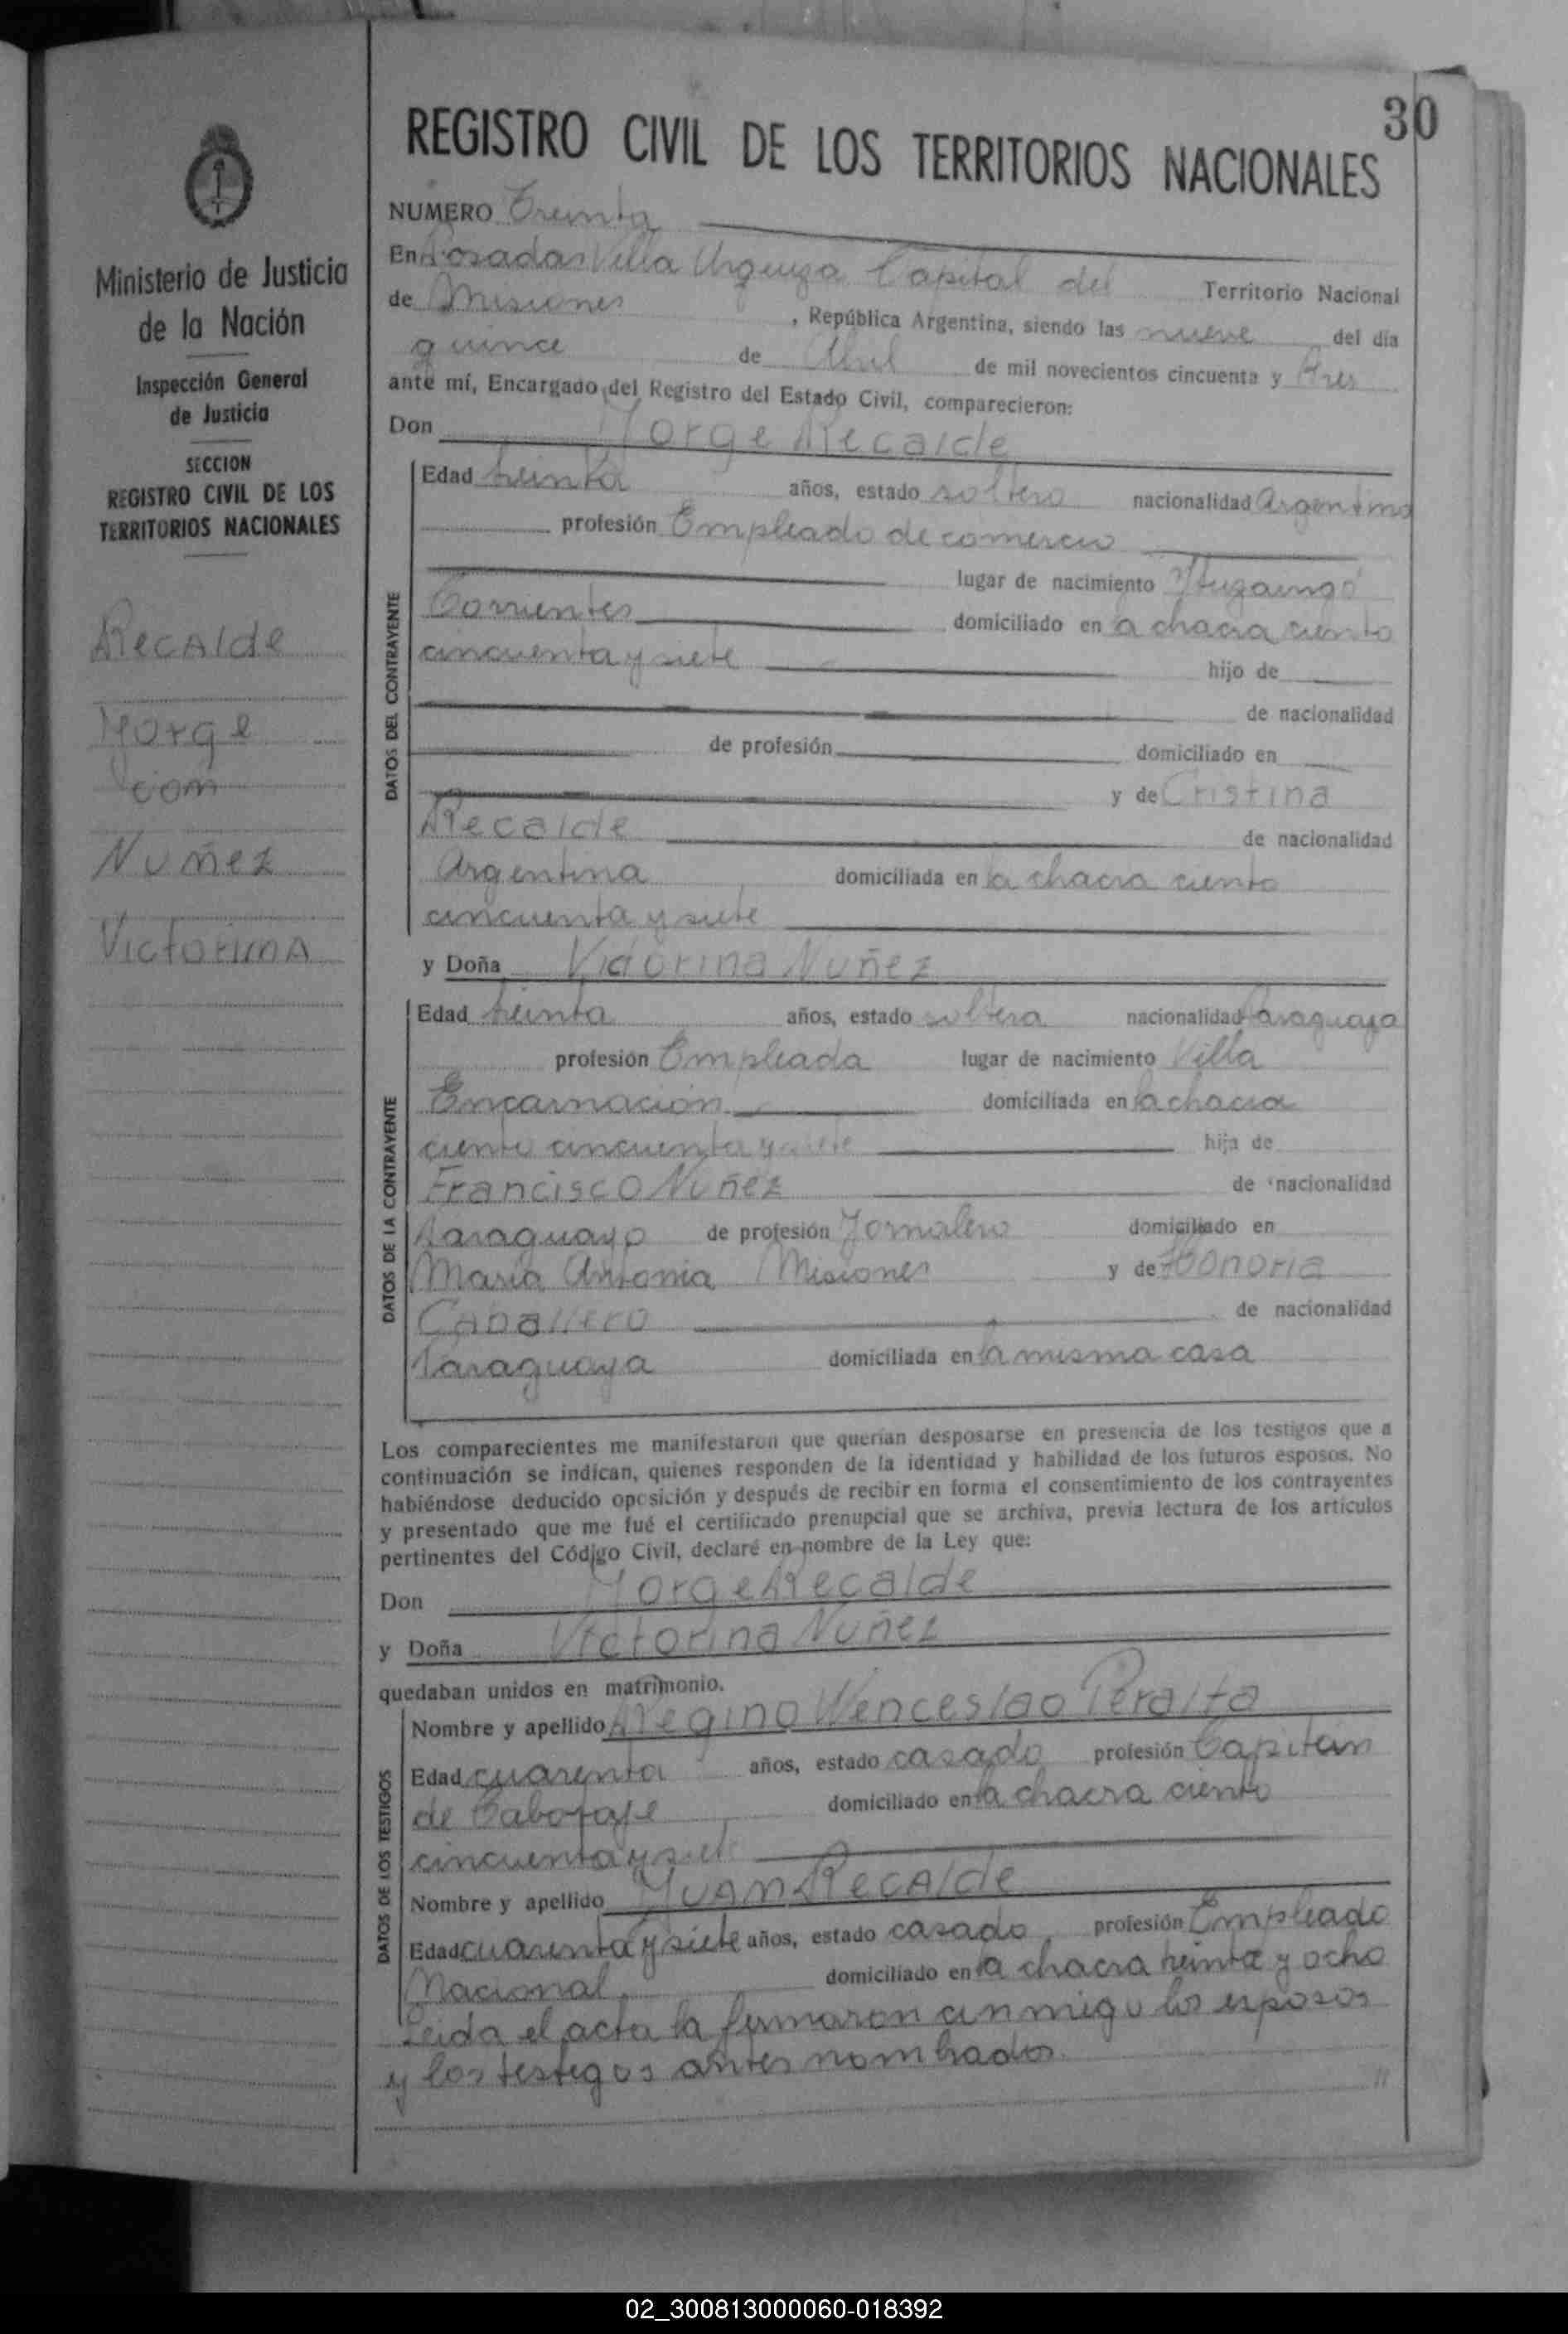 30
REGISTRO CIVIL DE LOS TERRITORIOS NACIONALES
Ministerio de Justicia
de la Nación
Inspección General
de Justicia
SECCION
REGISTRO CIVIL DE LOS
TERRITORIOS NACIONALES
Recalde
Jorge
con
Nuñez
Victorina
NUMERO Treinta
En Posadas Villa Urquiza Capital del Territorio Nacional
de Misiones, República Argentina, siendo las nueve del día
quince de Abril de mil novecientos cincuenta y tres
ante mí, Encargado del Registro del Estado Civil, comparecieron:
Don Jorge Recalde
DATOS DEL CONTRAYENTE
Edad treinta años, estado soltero nacionalidad Argentino
profesión Empleado de comercio
lugar de nacimiento Ituzaingó
Corrientes domiciliado en la chacra ciento
cincuenta y siete hijo de
de nacionalidad
de profesión domiciliado en
y de Cristina
Recalde de nacionalidad
Argentina domiciliada en la chacra ciento
cincuenta y siete
y Doña Victorina Nuñez
DATOS DE LA CONTRAYENTE
Edad treinta años, estado soltera nacionalidad Paraguaya
profesión Empleada lugar de nacimiento Villa
Encarnación domiciliada en la chacra
ciento cincuenta y siete hija de
Francisco Nuñez de nacionalidad
Paraguayo de profesión Jornalero domiciliado en
María Antonia Misiones y de Honoria
Caballero de nacionalidad
Paraguaya domiciliada en la misma casa
Los comparecientes me manifestaron que querían desposarse en presencia de los testigos que a
continuación se indican, quienes responden de la identidad y habilidad de los futuros esposos. No
habiéndose deducido oposición y después de recibir en forma el consentimiento de los contrayentes
y presentado que me fué el certificado prenupcial que se archiva, previa lectura de los artículos
pertinentes del Código Civil, declaré en nombre de la Ley que:
Don Jorge Recalde
y Doña Victorina Nuñez
quedaban unidos en matrimonio.
DATOS DE LOS TESTIGOS
Nombre y apellido Regino Wenceslao Peralta
Edad cuarenta años, estado casado profesión Capitán
de Cabotaje domiciliado en la chacra ciento
cincuenta y siete
Nombre y apellido Juan Recalde
Edad cuarenta y siete años, estado casado profesión Empleado
Nacional domiciliado en la chacra treinta y ocho
Leida el acta la firmaron conmigo los esposos
y los testigos antes nombrados
02_300813000060-018392